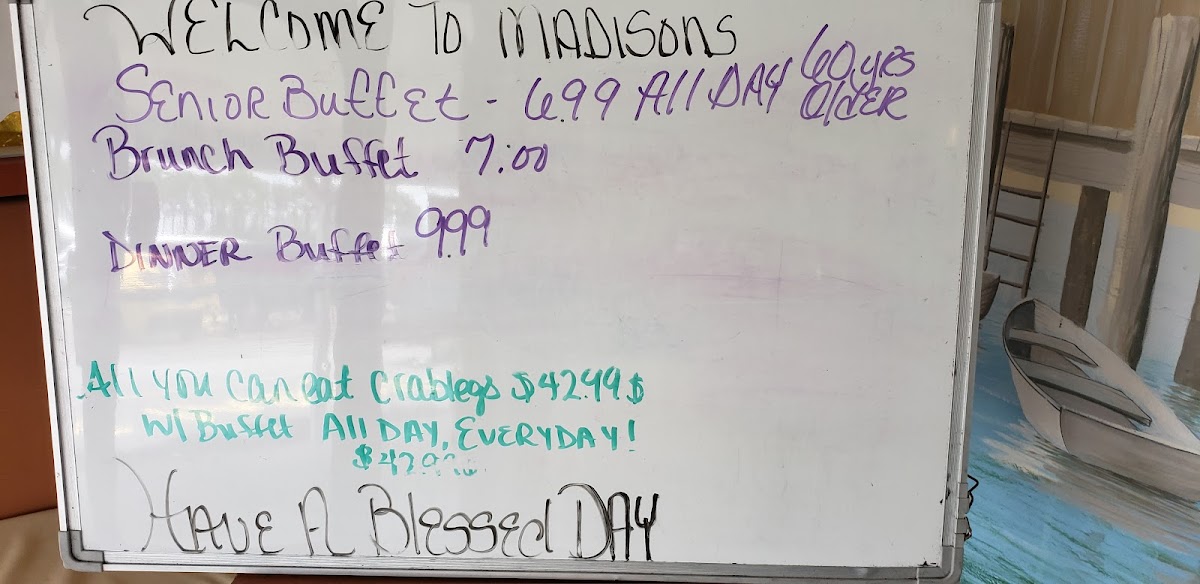 WELCOME TO MADISONS
SENIOR BUffEt - 6.99 All DAY 60 yRS OldER
Brunch Buffet 7:00
DINNER Buffet 9.99
All you can eat Crablegs $42.99$
W/ Buffet All DAY, EVERYDAY!
HAVE A Blessed DAY